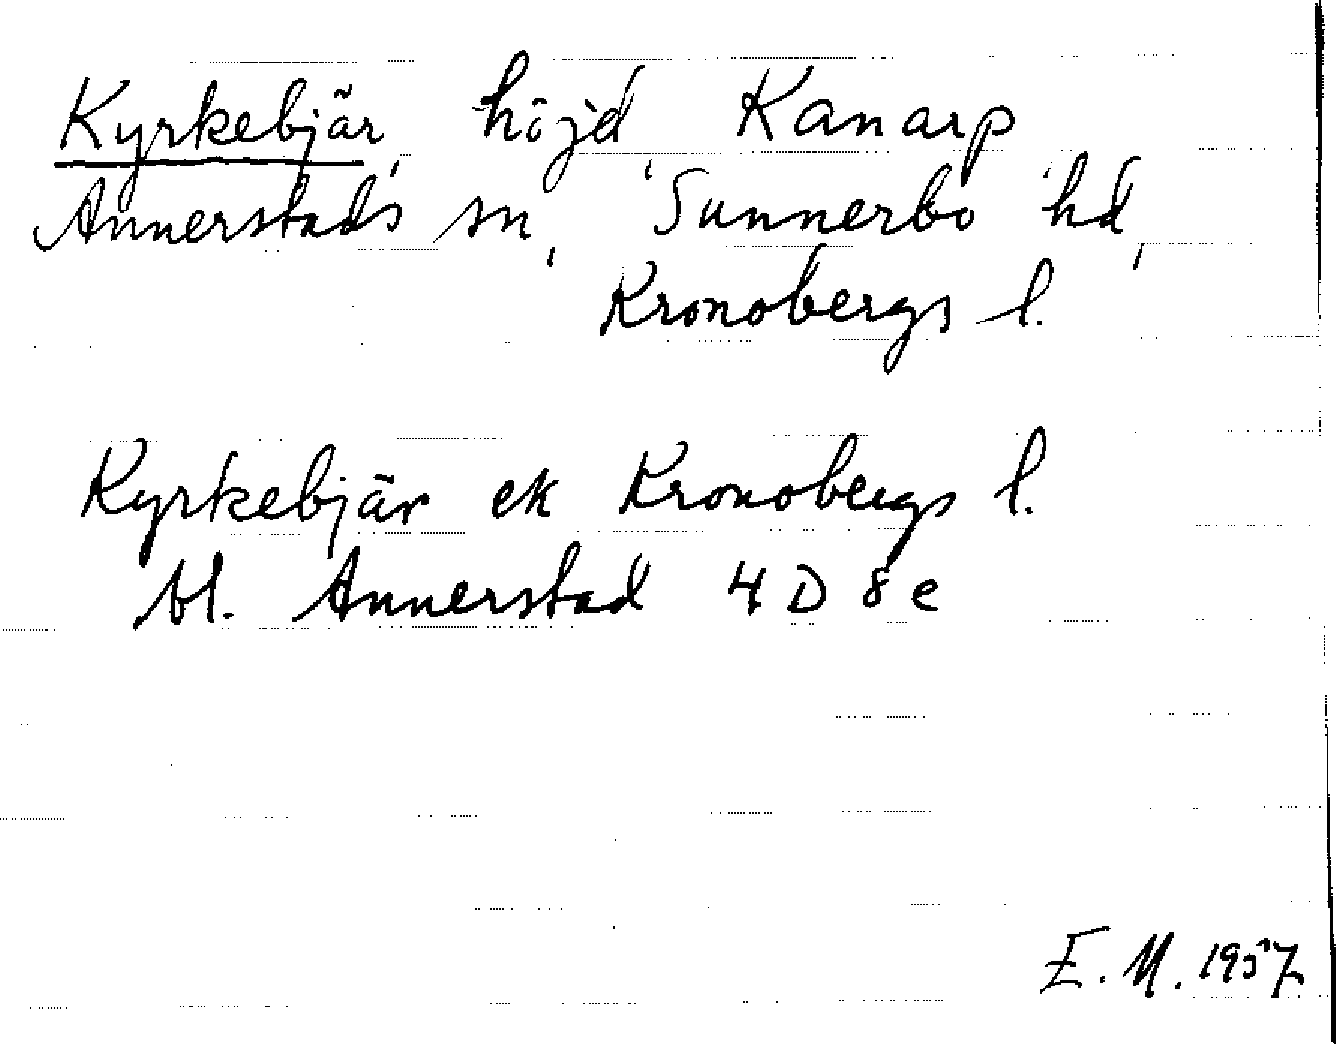 Kyrkebjär, höjd, Kanarp,
Annerstads sn, Sunnerbo hd,
Kronobergs l.
Kyrkebjär ek Kronobergs l.
bl. Annerstad 4 D 8 e
E. M. 1957